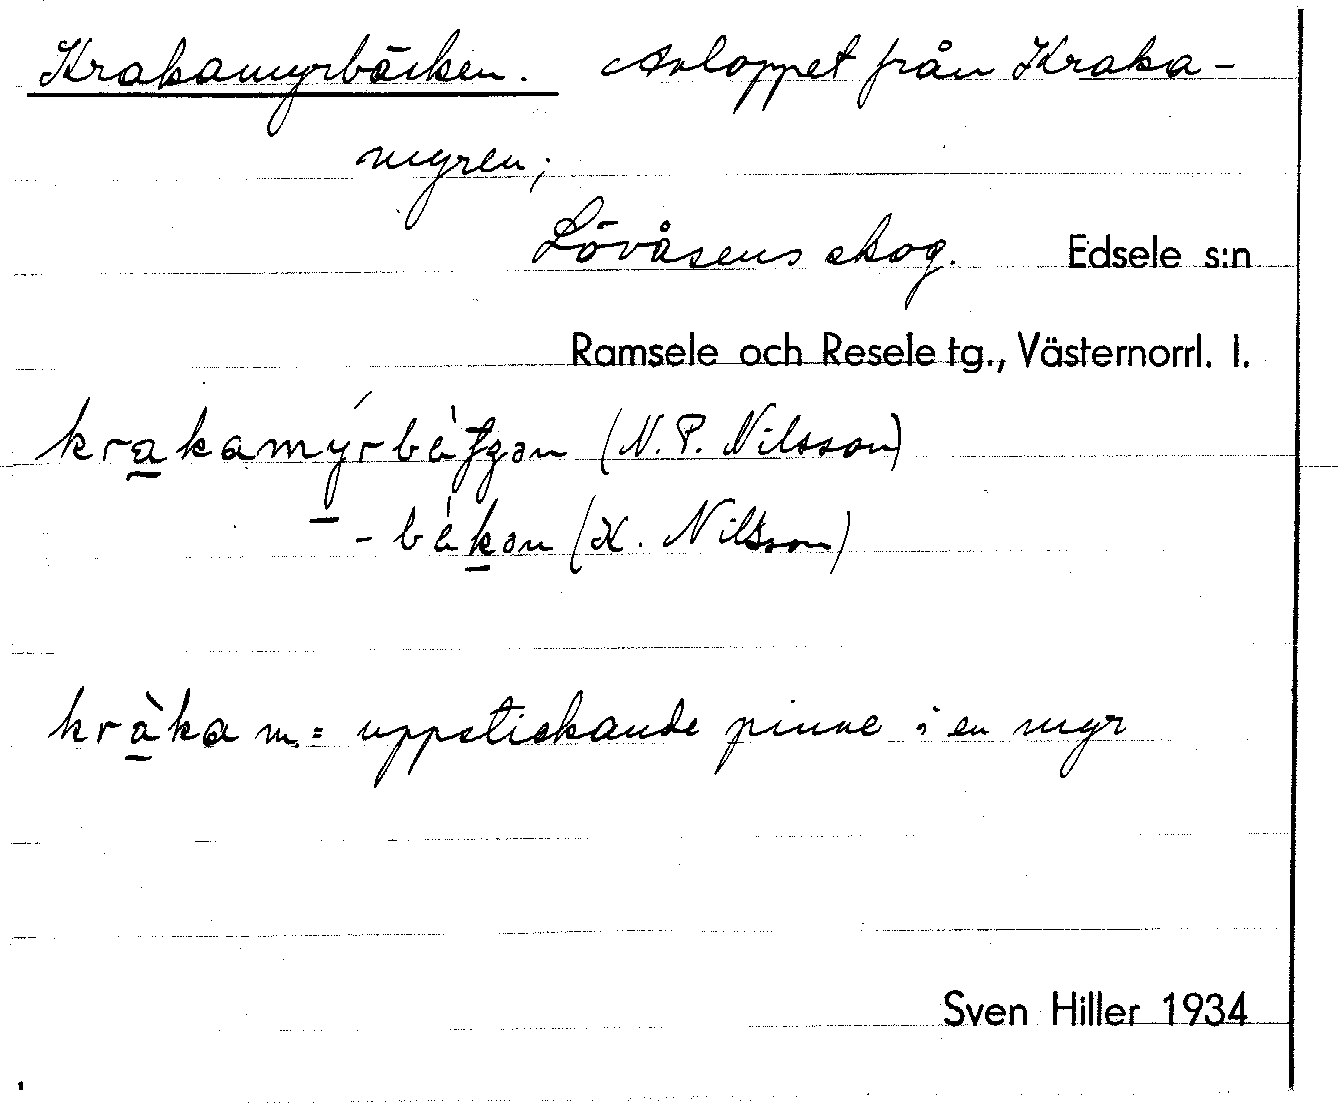 Krakamyrbäcken. Avloppet från Kraka-
myren;
Lövåsens skog. Edsele s:n
Ramsele och Resele tg., Västernorrl. l.
(N. P. Nilsson)
(K. Nilsson)
kràka m. = uppstickande pinne i en myr
Sven Hiller 1934